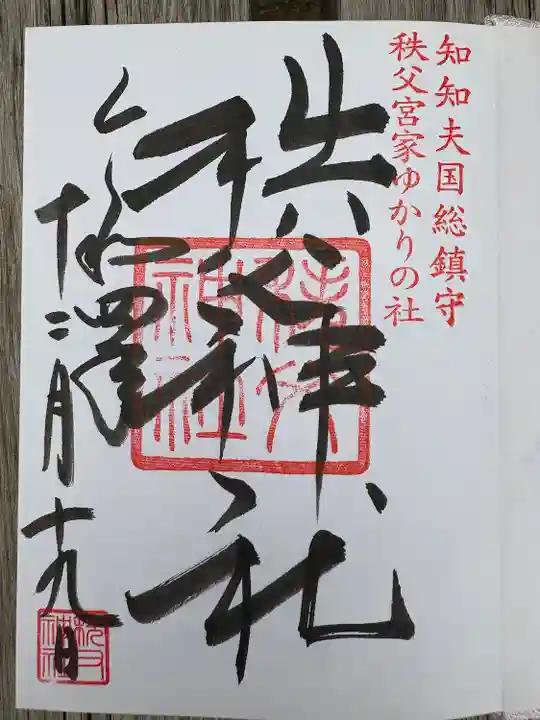 知知夫国総鎮守
秩父宮家ゆかりの社
秩父神社
令和四年
十二月十九日
秩父神社
秩父神社